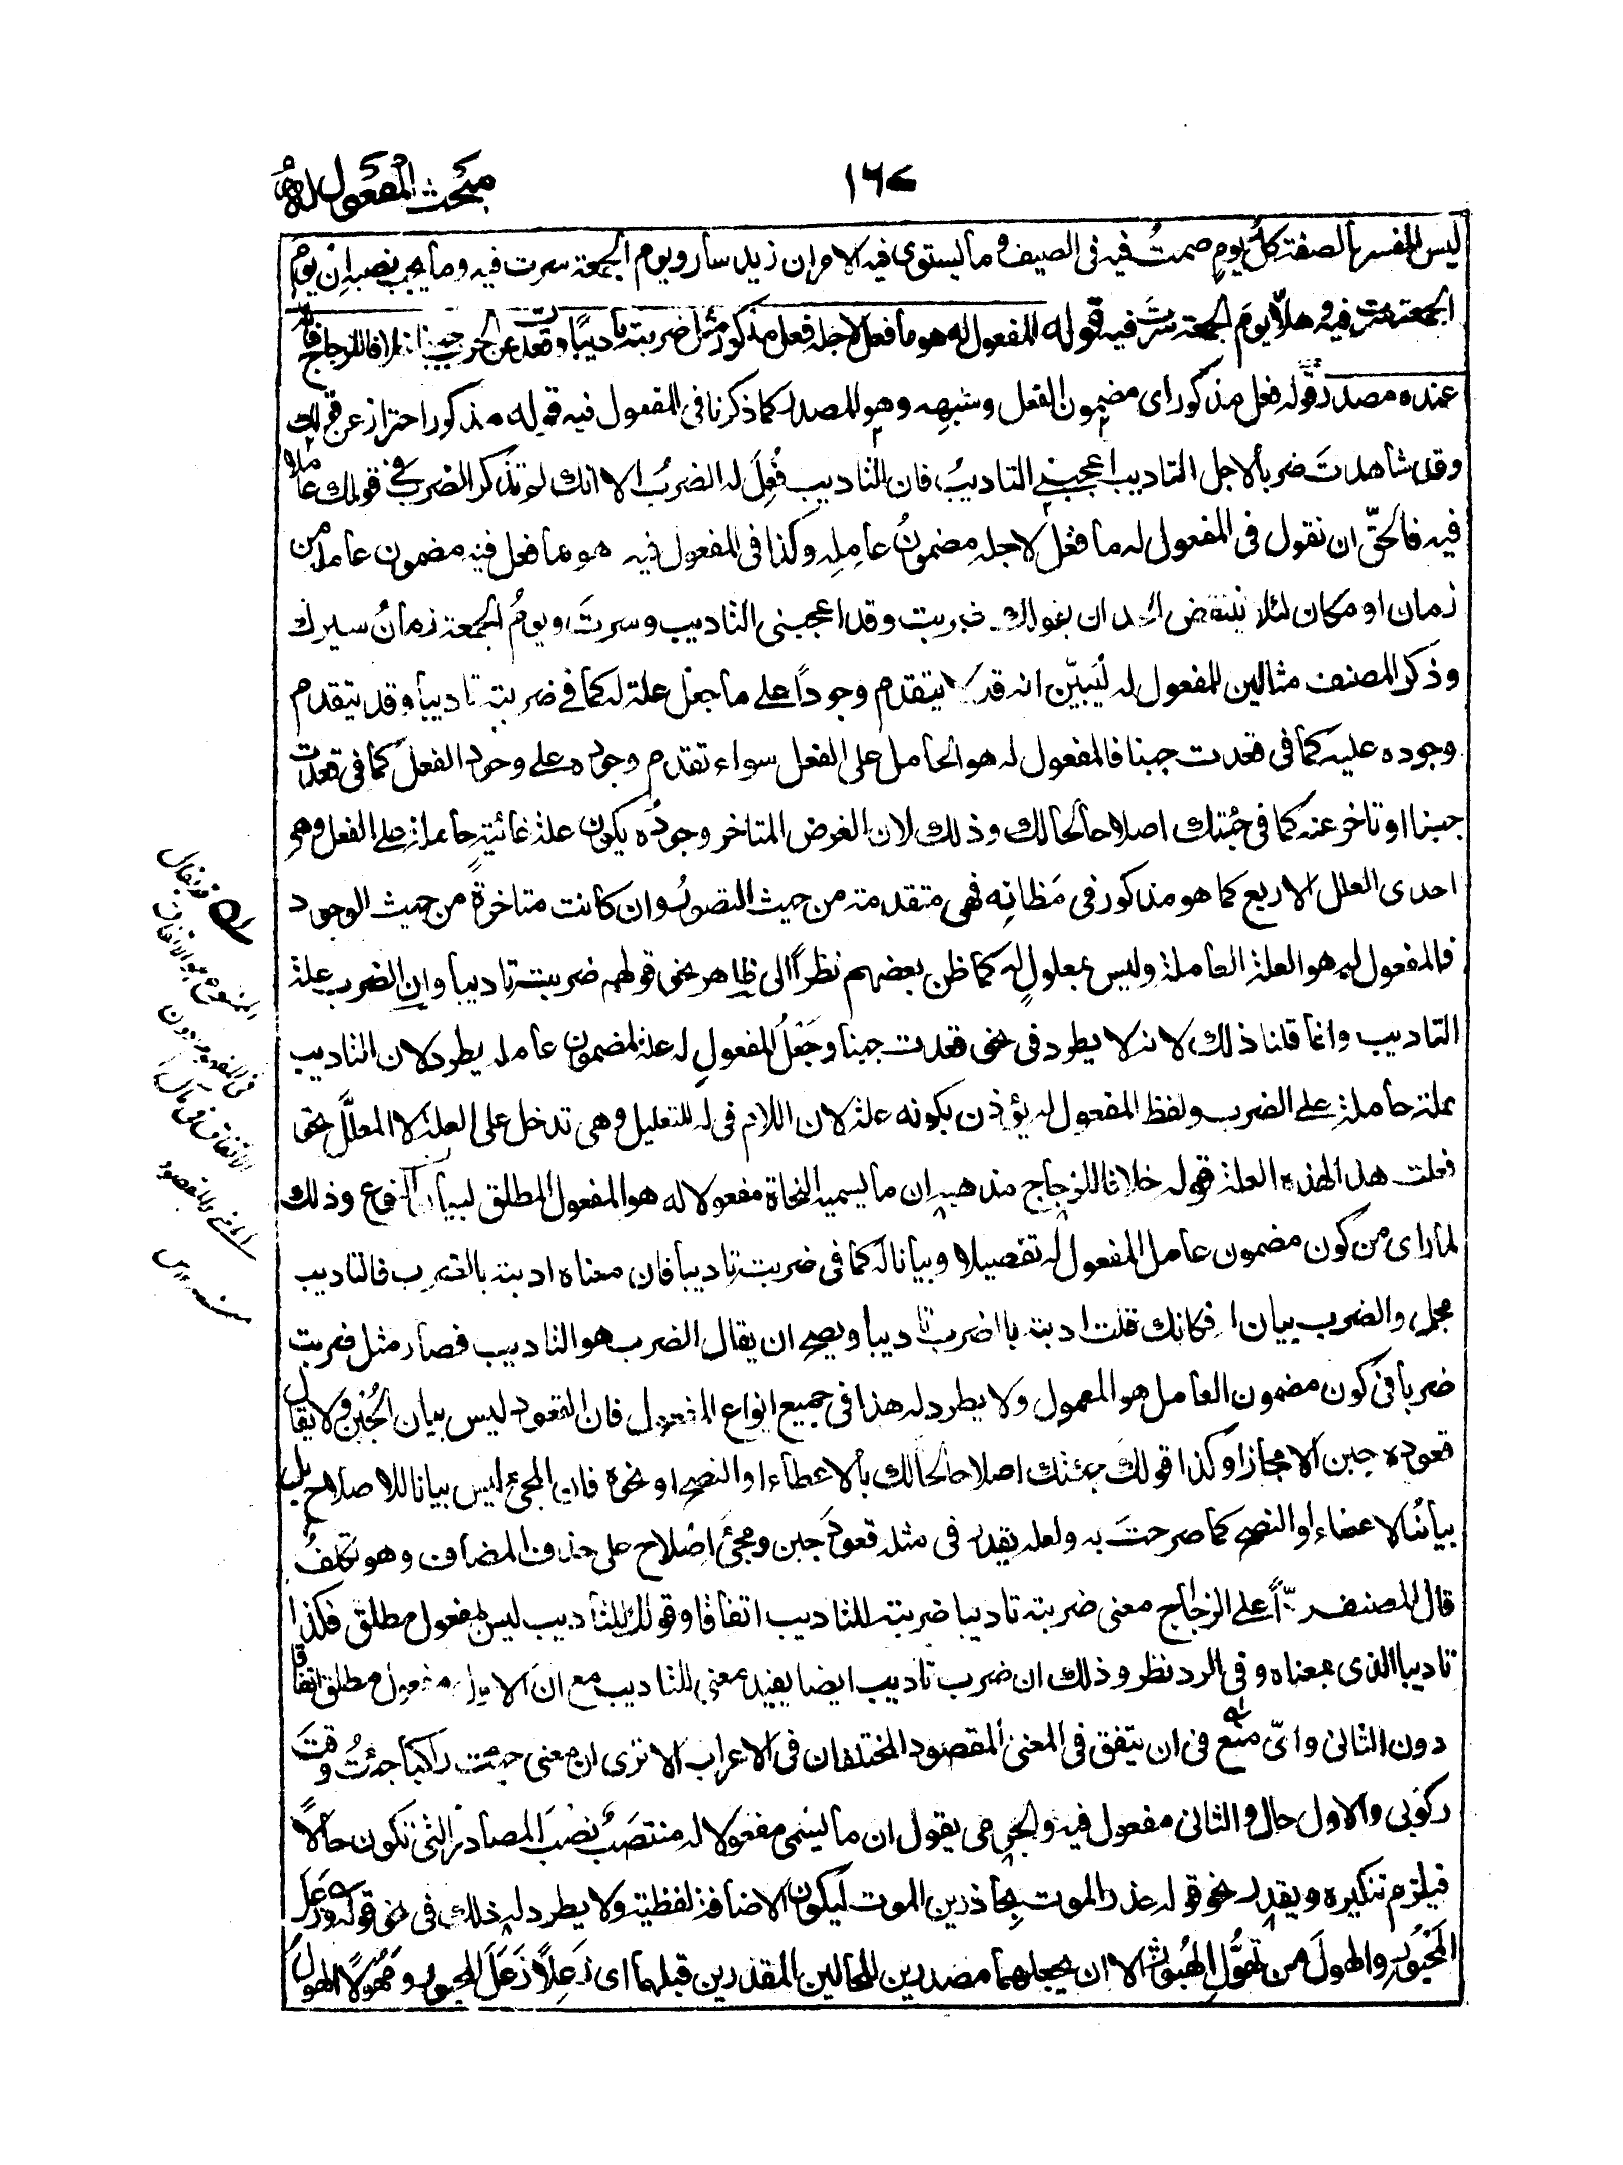 مبحث المفعول له
١٦٧
ليس المفسر بالصفة كلُّ يومٍ صمتُ فيه في الصيف و ما يستوى فيه الامران زيد سار ويوم الجمعة سرت فيه وما يجب نصبه ان يومَ
الجمعة سرت فيه و هلّا يومَ الجمعة سرتَ فيه قوله المفعول له هو ما فعل لاجله فعل مذكور مثل ضربته تاديبًا وقعدت عن الحرب جبنا خلافا للزجاج فانه
عنده مصدر قوله فعل مذكور اى مضمون الفعل وشبهِه وهو المصدر كما ذكرنا فى المفعول فيه قوله مذكور احتراز عن قولك
وقد شاهدتَ ضربا لاجل التاديب اعجبنى التاديبُ، فان التاديب فُعِلَ له الضربُ الا انك لم تذكر الضرب فى قولك عاملا
فيه فالحقّ ان نقول فى المفعول له ما فعل لاجله مضمونُ عامِلِه وكذا فى المفعول فيه هو ما فعل فيه مضمون عامله من
زمان او مكان لئلا ينتقض الحد ان بقولك ضربت وقد اعجبنى التاديب وسرتَ ويومُ الجمعة زمانُ سيرك
وذكر المصنف مثالين للمفعول له ليُبيّن انه قد لا يتقدم وجوداً على ما جعل علة له كما فى ضربته تاديبا وقد يتقدم
وجوده عليه كما فى قعدت جبنا فالمفعول له هو الحامل على الفعل سواء تقدم وجوده على وجود الفعل كما فى قعدت
جبنا او تاخر عنه كما فى جئتك اصلاحا لحالك وذلك لان الغرض المتاخر وجودُه يكون علةً غائيةً حاملةً على الفعل وهى
احدى العلل الاربع كما هو مذكور فى مَظانِّه فهى متقدمة من حيث التصور وان كانت متاخرةً من حيث الوجود
فالمفعول له هو العلة الحاملة وليس بمعلولٍ له كما ظن بعضهم نظراً الى ظاهر نحو قولهم ضربته تاديبا وان الضرب علة
التاديب وانما قلنا ذلك لانه لا يطرد فى نحو قعدت جبنا وجَعْلُ المفعولِ له علة لمضمون عامله يطرد لان التاديب
علة حاملة على الضرب ولفظ المفعول له يؤذن بكونه علة لان اللام فى له للتعليل وهى تدخل على العلة لا المعلَّل نحو
فعلت هذا لهذه العلة قوله خلافا للزجاج مذهبه ان ما يسميه النحاة مفعولا له هو المفعول المطلق لبيان النوع وذلك
لما راى من كون مضمون عامل المفعول له تفصيلا وبيانا له كما فى ضربت تاديبا فان معناه ادبته بالضرب فالتاديب
مجمل والضرب بيان له فكانك قلت ادبته بالضرب تاديبا ويصح ان يقال الضرب هو التاديب فصار مثل ضربت
ضربا فى كون مضمون العامل هو المعمول ولا يطرد له هذا فى جميع انواع المفعول فان القعود ليس بيان الجُبن ولا يقال
قعوده جبن الا مجازا وكذا قولك جئتك اصلاحا لحالك بالاعطاء او النصح او نحوه فان المجئ ليس بيانا للاصلاح بل
بيانُه الاعطاء او النصح كما صرحتَ به ولعله يقدر فى مثله قعودَ جبن ومجئَ اصلاح على حذف المضاف وهو تكلفُ
قال المصنف ردًّا على الزجاج معنى ضربته تاديبا ضربته للتاديب اتفاقا وقولك للتاديب ليس بمفعول مطلق فكذا
تاديبا الذى بمعناه وفى الرد نظر وذلك ان ضرب تاديب ايضا يفيد معنى للتاديب مع ان الاول مفعول مطلق اتفاقا
دون الثانى واىّ منع فى ان يتفق فى المعنى المقصود المختلفان فى الاعراب الا ترى ان معنى جئت راكبا جئتُ وقتَ
ركوبى والاول حال والثانى مفعول فيه والجرمى يقول ان ما يسمى مفعولا له منتصبٌ نصبَ المصادر التى تكون حالًا
فيلزم تنكيره ويقدر نحو قوله حذر الموت بحاذرين الموت ليكون الاضافة لفظية ولا يطرد له ذلك فى نحو قوله وزعل
المحبور والهولَ من تهوُّلِ الهبور الا ان يجعلهما مصدرين للحالين المقدرين قبلهما اى زَعِلاً زَعَلَ المحبور ومَهُولًا الهول